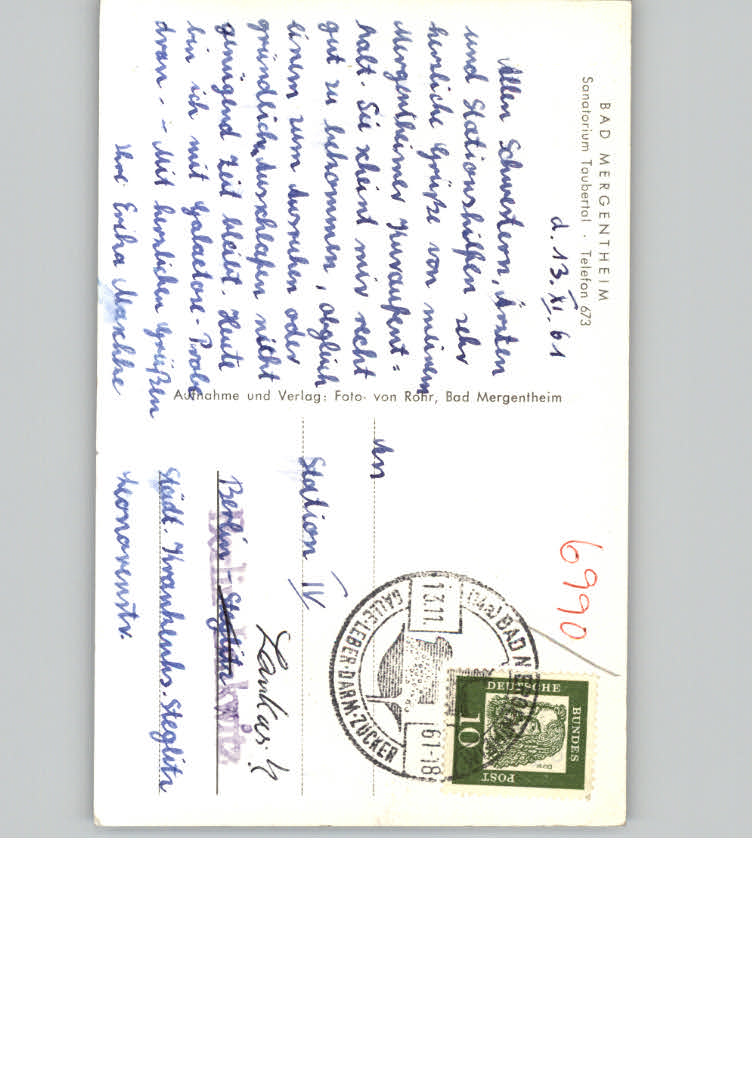 BAD MERGENTHEIM
Sanatorium Taubertal · Telefon 673
d. 13. XI. 61
Allen Schwestern, Ärzten
und Stationshilfen sehr
herzliche Grüße von meinem
Mergentheimer Kuraufent=
halt. Sie scheint mir recht
gut zu bekommen, obgleich
einem zum Ausruhen oder
gründlich Ausschlafen nicht
genügend Zeit bleibt. Heute
bin ich mit Galactose-Probe
dran. - Mit herzlichen Grüßen
Ihre Erika Maschke
Aufnahme und Verlag: Foto- von Rohr, Bad Mergentheim
An
Station IV
Berlin-Steglitz
Lankw. 4
Städt. Krankenhs. Steglitz
Leonorenstr.
6990
BAD
13.11.
61-18
GALLE-LEBER-DARM-ZUCKER
DEUTSCHE
BUNDES
POST
10